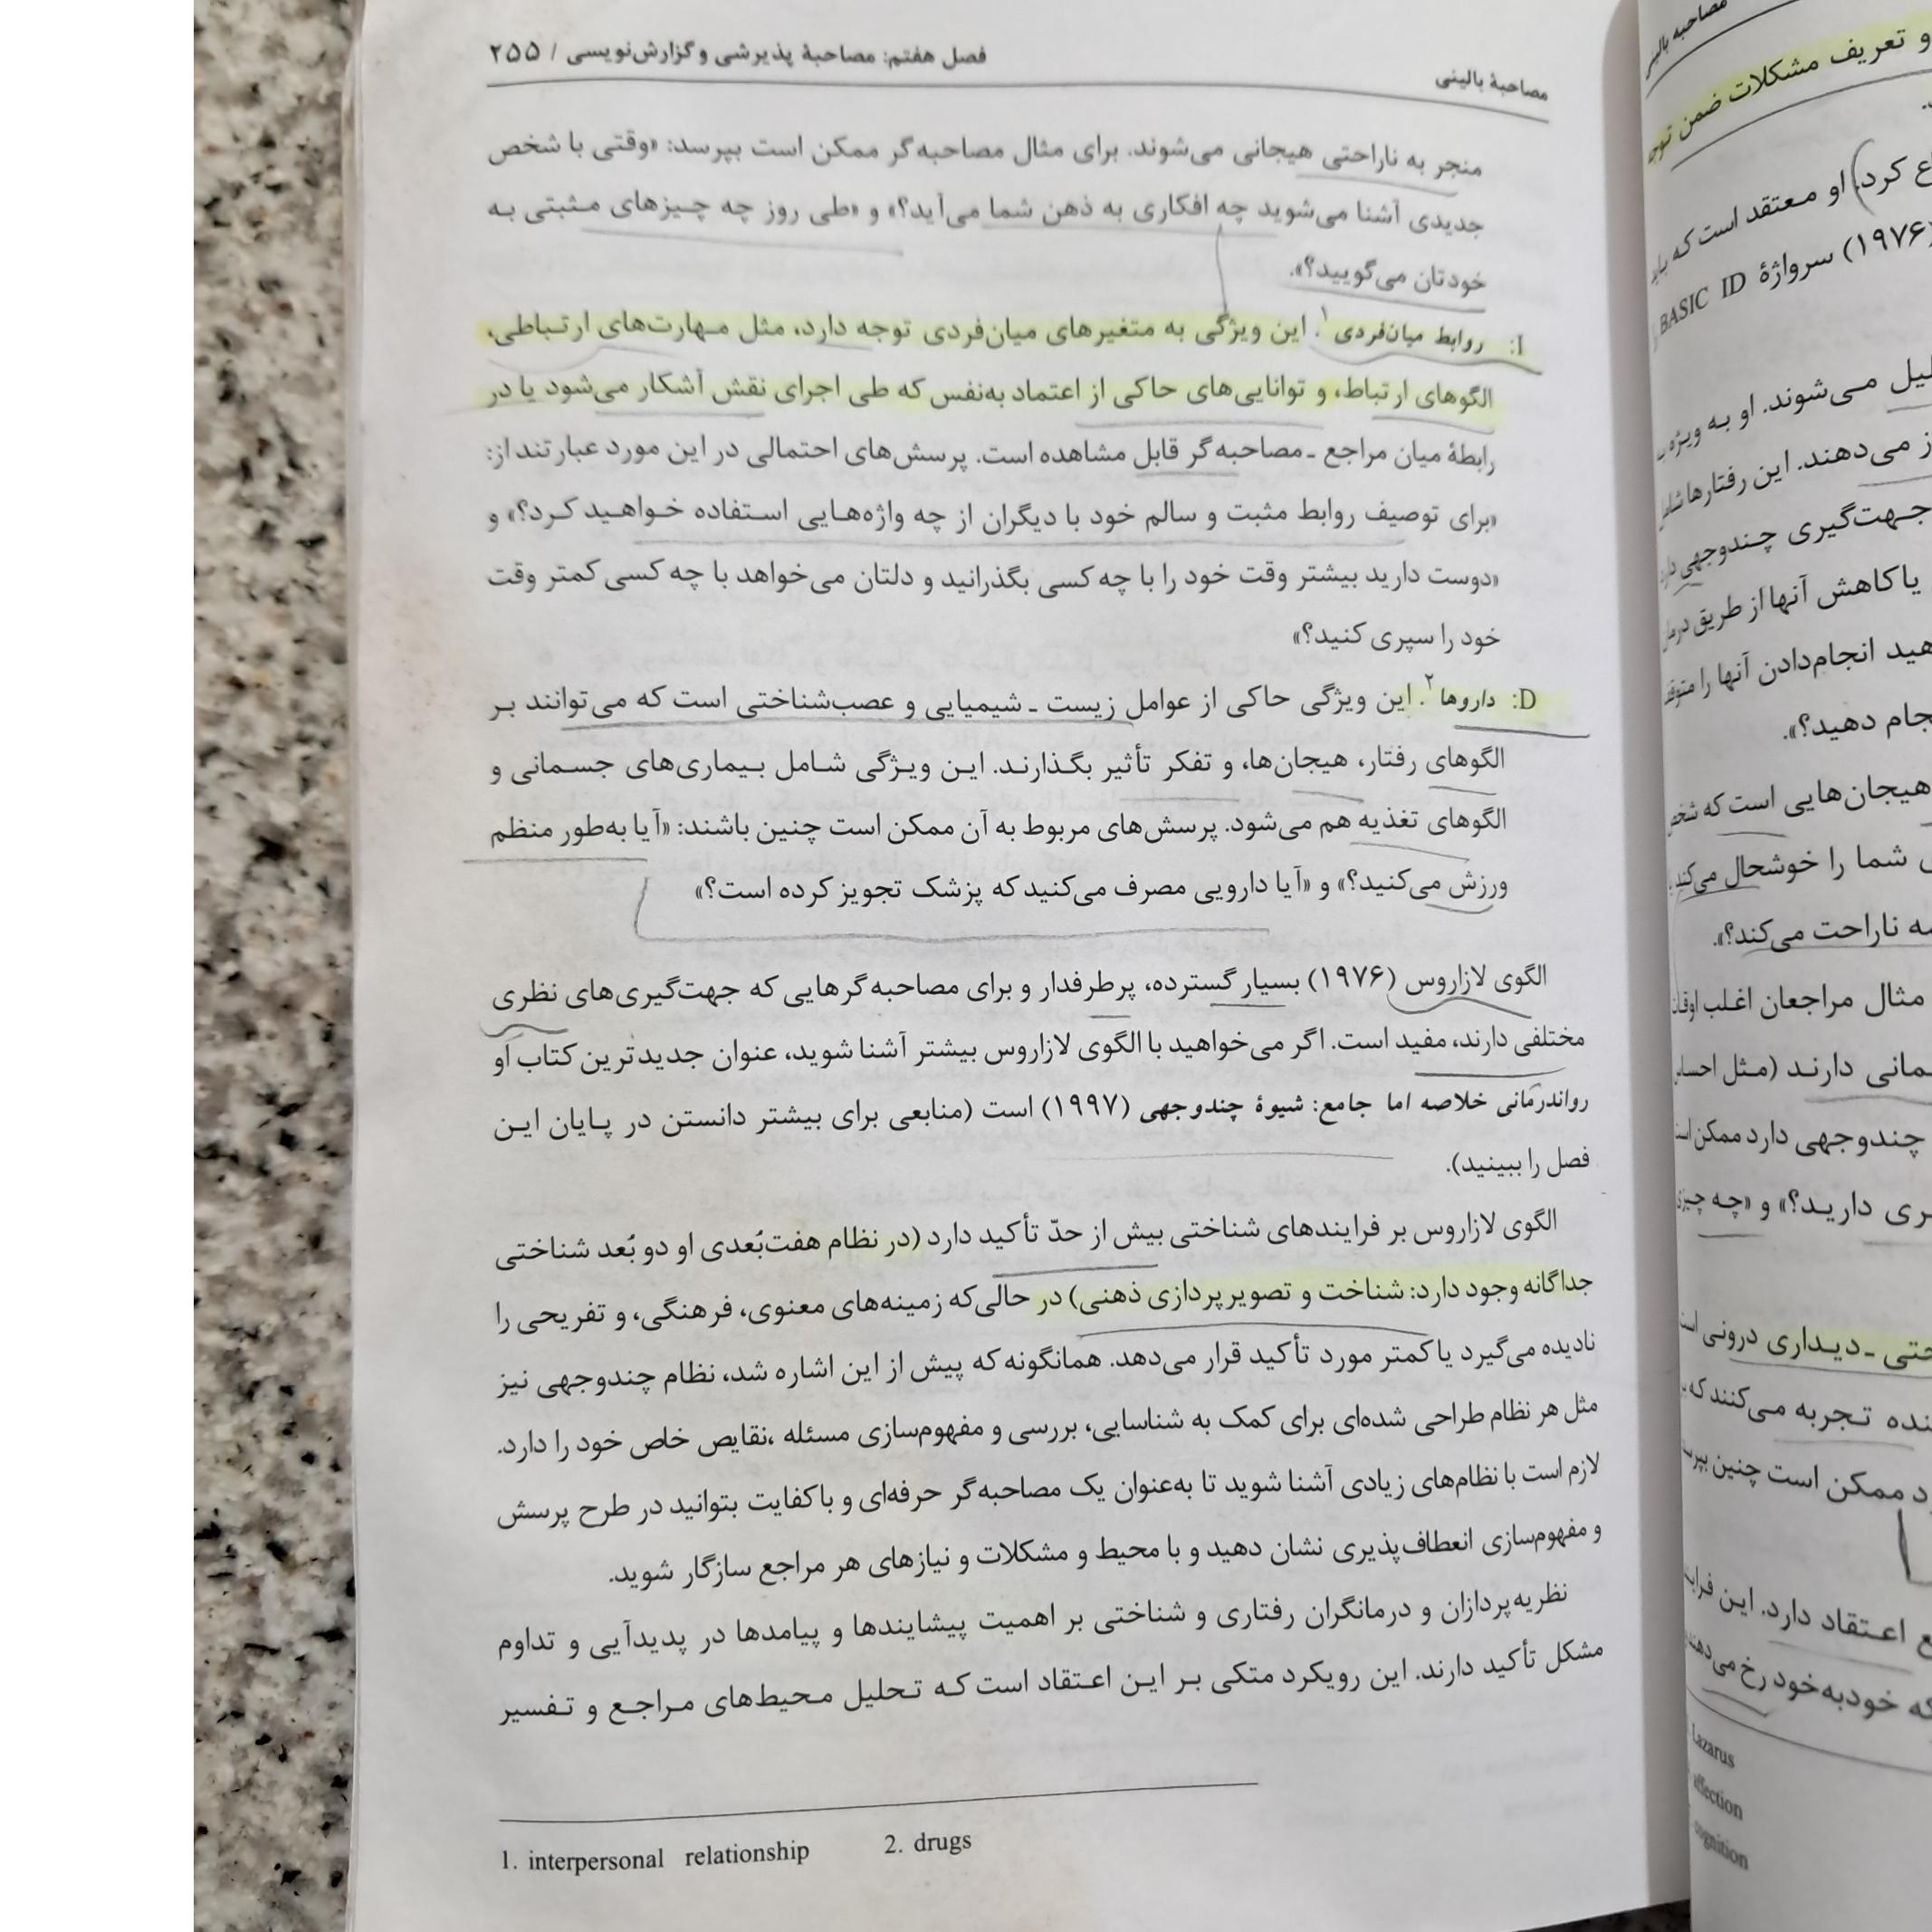 مصاحبهٔ بالینی
فصل هفتم: مصاحبهٔ پذیرشی و گزارش‌نویسی / ۲۵۵
منجر به ناراحتی هیجانی می‌شوند. برای مثال مصاحبه‌گر ممکن است بپرسد: «وقتی با شخص
جدیدی آشنا می‌شوید چه افکاری به ذهن شما می‌آید؟» و «طی روز چه چیزهای مثبتی به
خودتان می‌گویید؟».
I: روابط میان‌فردی۱. این ویژگی به متغیرهای میان‌فردی توجه دارد، مثل مهارت‌های ارتباطی،
الگوهای ارتباط، و توانایی‌های حاکی از اعتماد به‌نفس که طی اجرای نقش آشکار می‌شود یا در
رابطهٔ میان مراجع ـ مصاحبه‌گر قابل مشاهده است. پرسش‌های احتمالی در این مورد عبارتند از:
«برای توصیف روابط مثبت و سالم خود با دیگران از چه واژه‌هایی استفاده خواهید کرد؟» و
«دوست دارید بیشتر وقت خود را با چه کسی بگذرانید و دلتان می‌خواهد با چه کسی کمتر وقت
خود را سپری کنید؟»
D: داروها۲. این ویژگی حاکی از عوامل زیست ـ شیمیایی و عصب‌شناختی است که می‌توانند بر
الگوهای رفتار، هیجان‌ها، و تفکر تأثیر بگذارند. این ویژگی شامل بیماری‌های جسمانی و
الگوهای تغذیه هم می‌شود. پرسش‌های مربوط به آن ممکن است چنین باشند: «آیا به‌طور منظم
ورزش می‌کنید؟» و «آیا دارویی مصرف می‌کنید که پزشک تجویز کرده است؟»
الگوی لازاروس (۱۹۷۶) بسیار گسترده، پرطرفدار و برای مصاحبه‌گرهایی که جهت‌گیری‌های نظری
مختلفی دارند، مفید است. اگر می‌خواهید با الگوی لازاروس بیشتر آشنا شوید، عنوان جدیدترین کتاب او
رواندرمانی خلاصه اما جامع: شیوهٔ چندوجهی (۱۹۹۷) است (منابعی برای بیشتر دانستن در پایان این
فصل را ببینید).
الگوی لازاروس بر فرایندهای شناختی بیش از حدّ تأکید دارد (در نظام هفت‌بُعدی او دو بُعد شناختی
جداگانه وجود دارد: شناخت و تصویرپردازی ذهنی) در حالی‌که زمینه‌های معنوی، فرهنگی، و تفریحی را
نادیده می‌گیرد یا کمتر مورد تأکید قرار می‌دهد. همانگونه که پیش از این اشاره شد، نظام چندوجهی نیز
مثل هر نظام طراحی شده‌ای برای کمک به شناسایی، بررسی و مفهوم‌سازی مسئله ،نقایص خاص خود را دارد.
لازم است با نظام‌های زیادی آشنا شوید تا به‌عنوان یک مصاحبه‌گر حرفه‌ای و باکفایت بتوانید در طرح پرسش
و مفهوم‌سازی انعطاف‌پذیری نشان دهید و با محیط و مشکلات و نیازهای هر مراجع سازگار شوید.
نظریه‌پردازان و درمانگران رفتاری و شناختی بر اهمیت پیشایندها و پیامدها در پدیدآیی و تداوم
مشکل تأکید دارند. این رویکرد متکی بر این اعتقاد است که تحلیل محیط‌های مراجع و تفسیر
1. interpersonal relationship 2. drugs
مصاحبه بالینی
و تعریف مشکلات ضمن توجه
کرد. او معتقد است که باید
(۱۹۷۶) سرواژهٔ BASIC ID
می‌شوند. او به ویژه
می‌دهند. این رفتارها شامل
جهت‌گیری چندوجهی
یا کاهش آنها از طریق
انجام‌دادن آنها را
دهید؟».
هیجان‌هایی است که شخص
شما را خوشحال می‌کند
ناراحت می‌کند؟».
مثال مراجعان اغلب اوقات
دارند (مثل احساس
چندوجهی دارد ممکن است
دارید؟» و «چه چیزی
دیداری درونی است
تجربه می‌کنند که
ممکن است چنین بپرسد
اعتقاد دارد. این
که خودبه‌خود رخ می‌دهند
Lazarus
affection
cognition